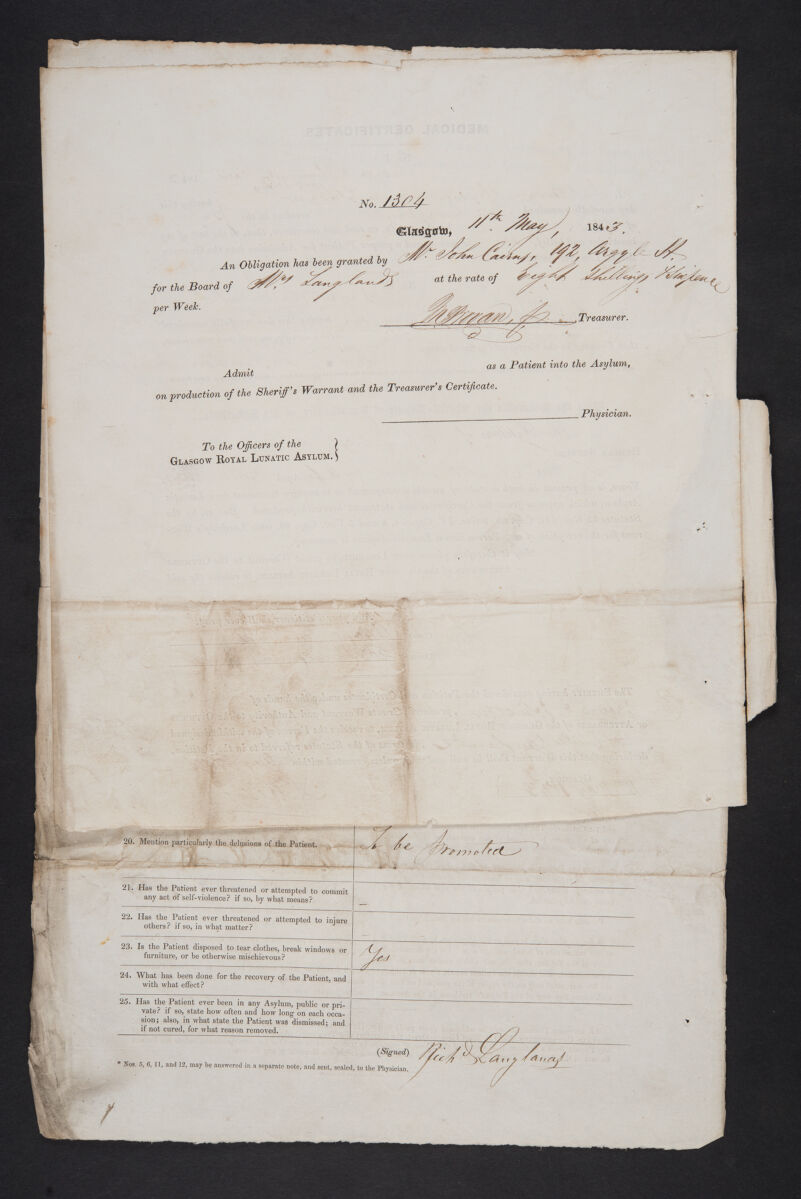 No. 1304
Glasgow, 11th May, 1843.
An Obligation has been granted by Mr. John Cairns, 192, Argyle St.
for the Board of Mrs Langlands at the rate of Eight Shillings & Sixpence
per Week.
Treasurer.
Admit as a Patient into the Asylum,
on production of the Sheriff's Warrant and the Treasurer's Certificate.
Physician.
To the Officers of the
Glasgow Royal Lunatic Asylum.}
20. Mention particularly the delusions of the Patient. To be promoted
21. Has the Patient ever threatened or attempted to commit
any act of self-violence? if so, by what means? –
22. Has the Patient ever threatened or attempted to injure
others? if so, in what matter? –
23. Is the Patient disposed to tear clothes, break windows or
furniture, or be otherwise mischievous? Yes
24. What has been done for the recovery of the Patient, and
with what effect?
25. Has the Patient ever been in any Asylum, public or pri-
vate? if so, state how often and how long on each occa-
sion; also, in what state the Patient was dismissed; and
if not cured, for what reason removed.
(Signed) Richd Langlands
* Nos. 5, 6, 11, and 12, may be answered in a separate note, and sent, sealed, to the Physician.